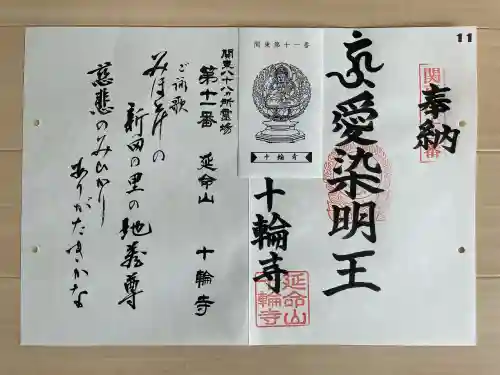 11
奉納
関東
番
愛染明王
十輪寺
延命山
十輪寺
関東第十一番
十輪寺
関東八十八ヵ所霊場
第十一番 延命山 十輪寺
ご詠歌
みほとけの
新田の里の地蔵尊
慈悲のみひかり
ありがたきかな